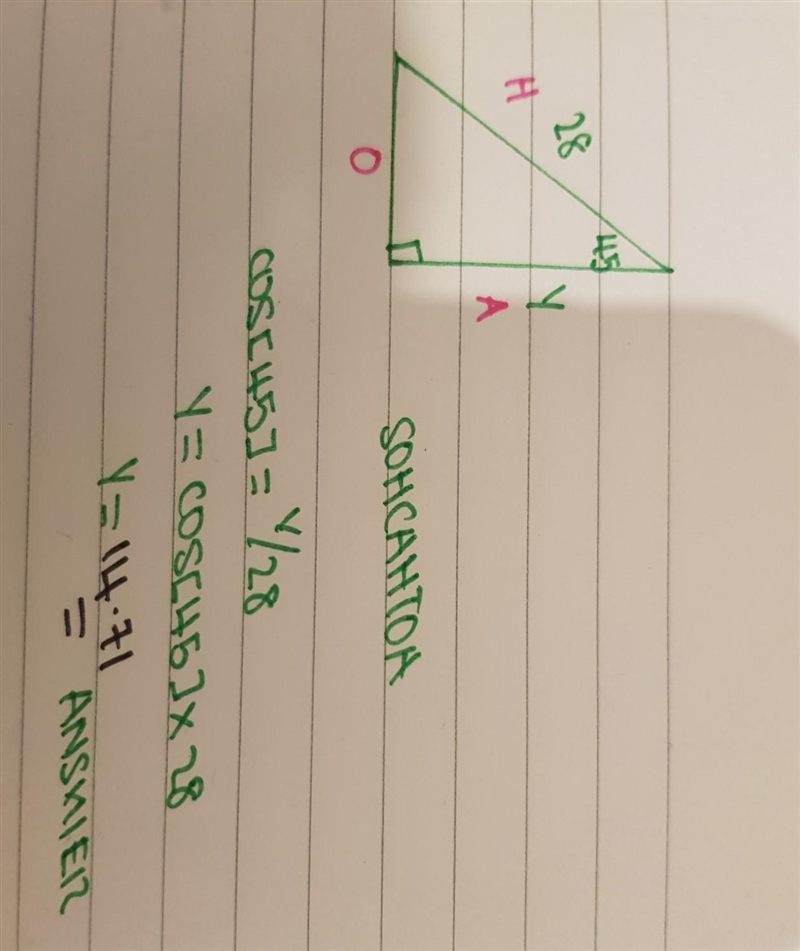 45
28
Y
H
A
SOHCAHTOA
O
COS[45] = Y/28
Y = COS[45] × 28
Y = 14.71
ANSWER